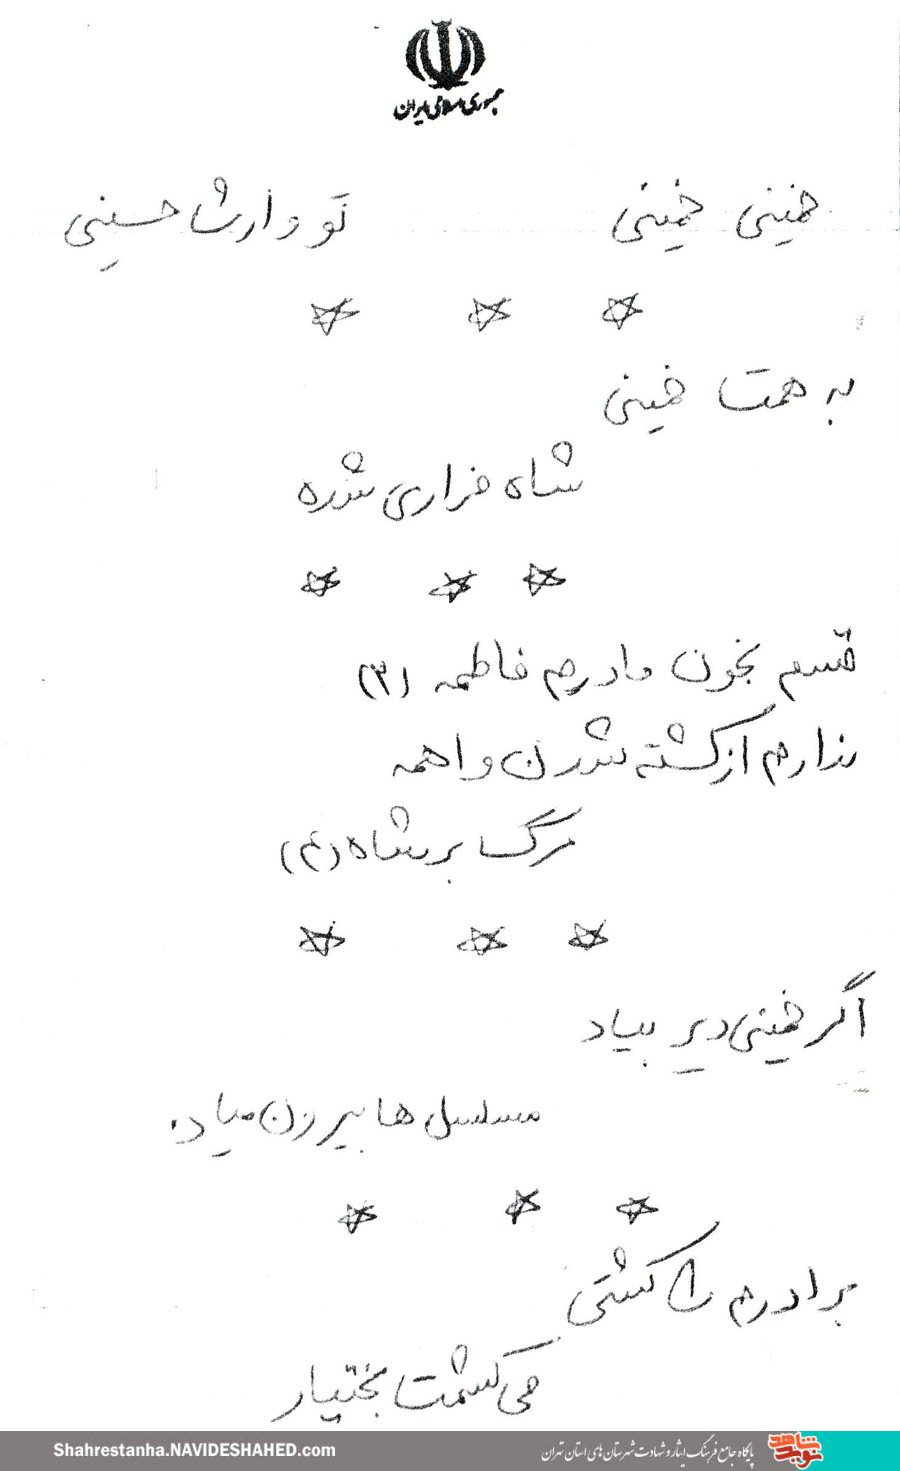 جمهوری اسلامی ایران
خمینی خمینی تو وارث حسینی
به همت خمینی
شاه فراری شده
قسم بخون مادرم فاطمه (۳)
ندارم از کشته شدن واهمه
مرگ بر شاه (۴)
اگر خمینی دیر بیاد
مسلسل ها بیرون میاد.
برادرم را کشتی
می کشمت بختیار
Shahrestanha.NAVIDESHAHED.com
پایگاه جامع فرهنگ ایثار و شهادت شهرستان های استان تهران
نوید شاهد